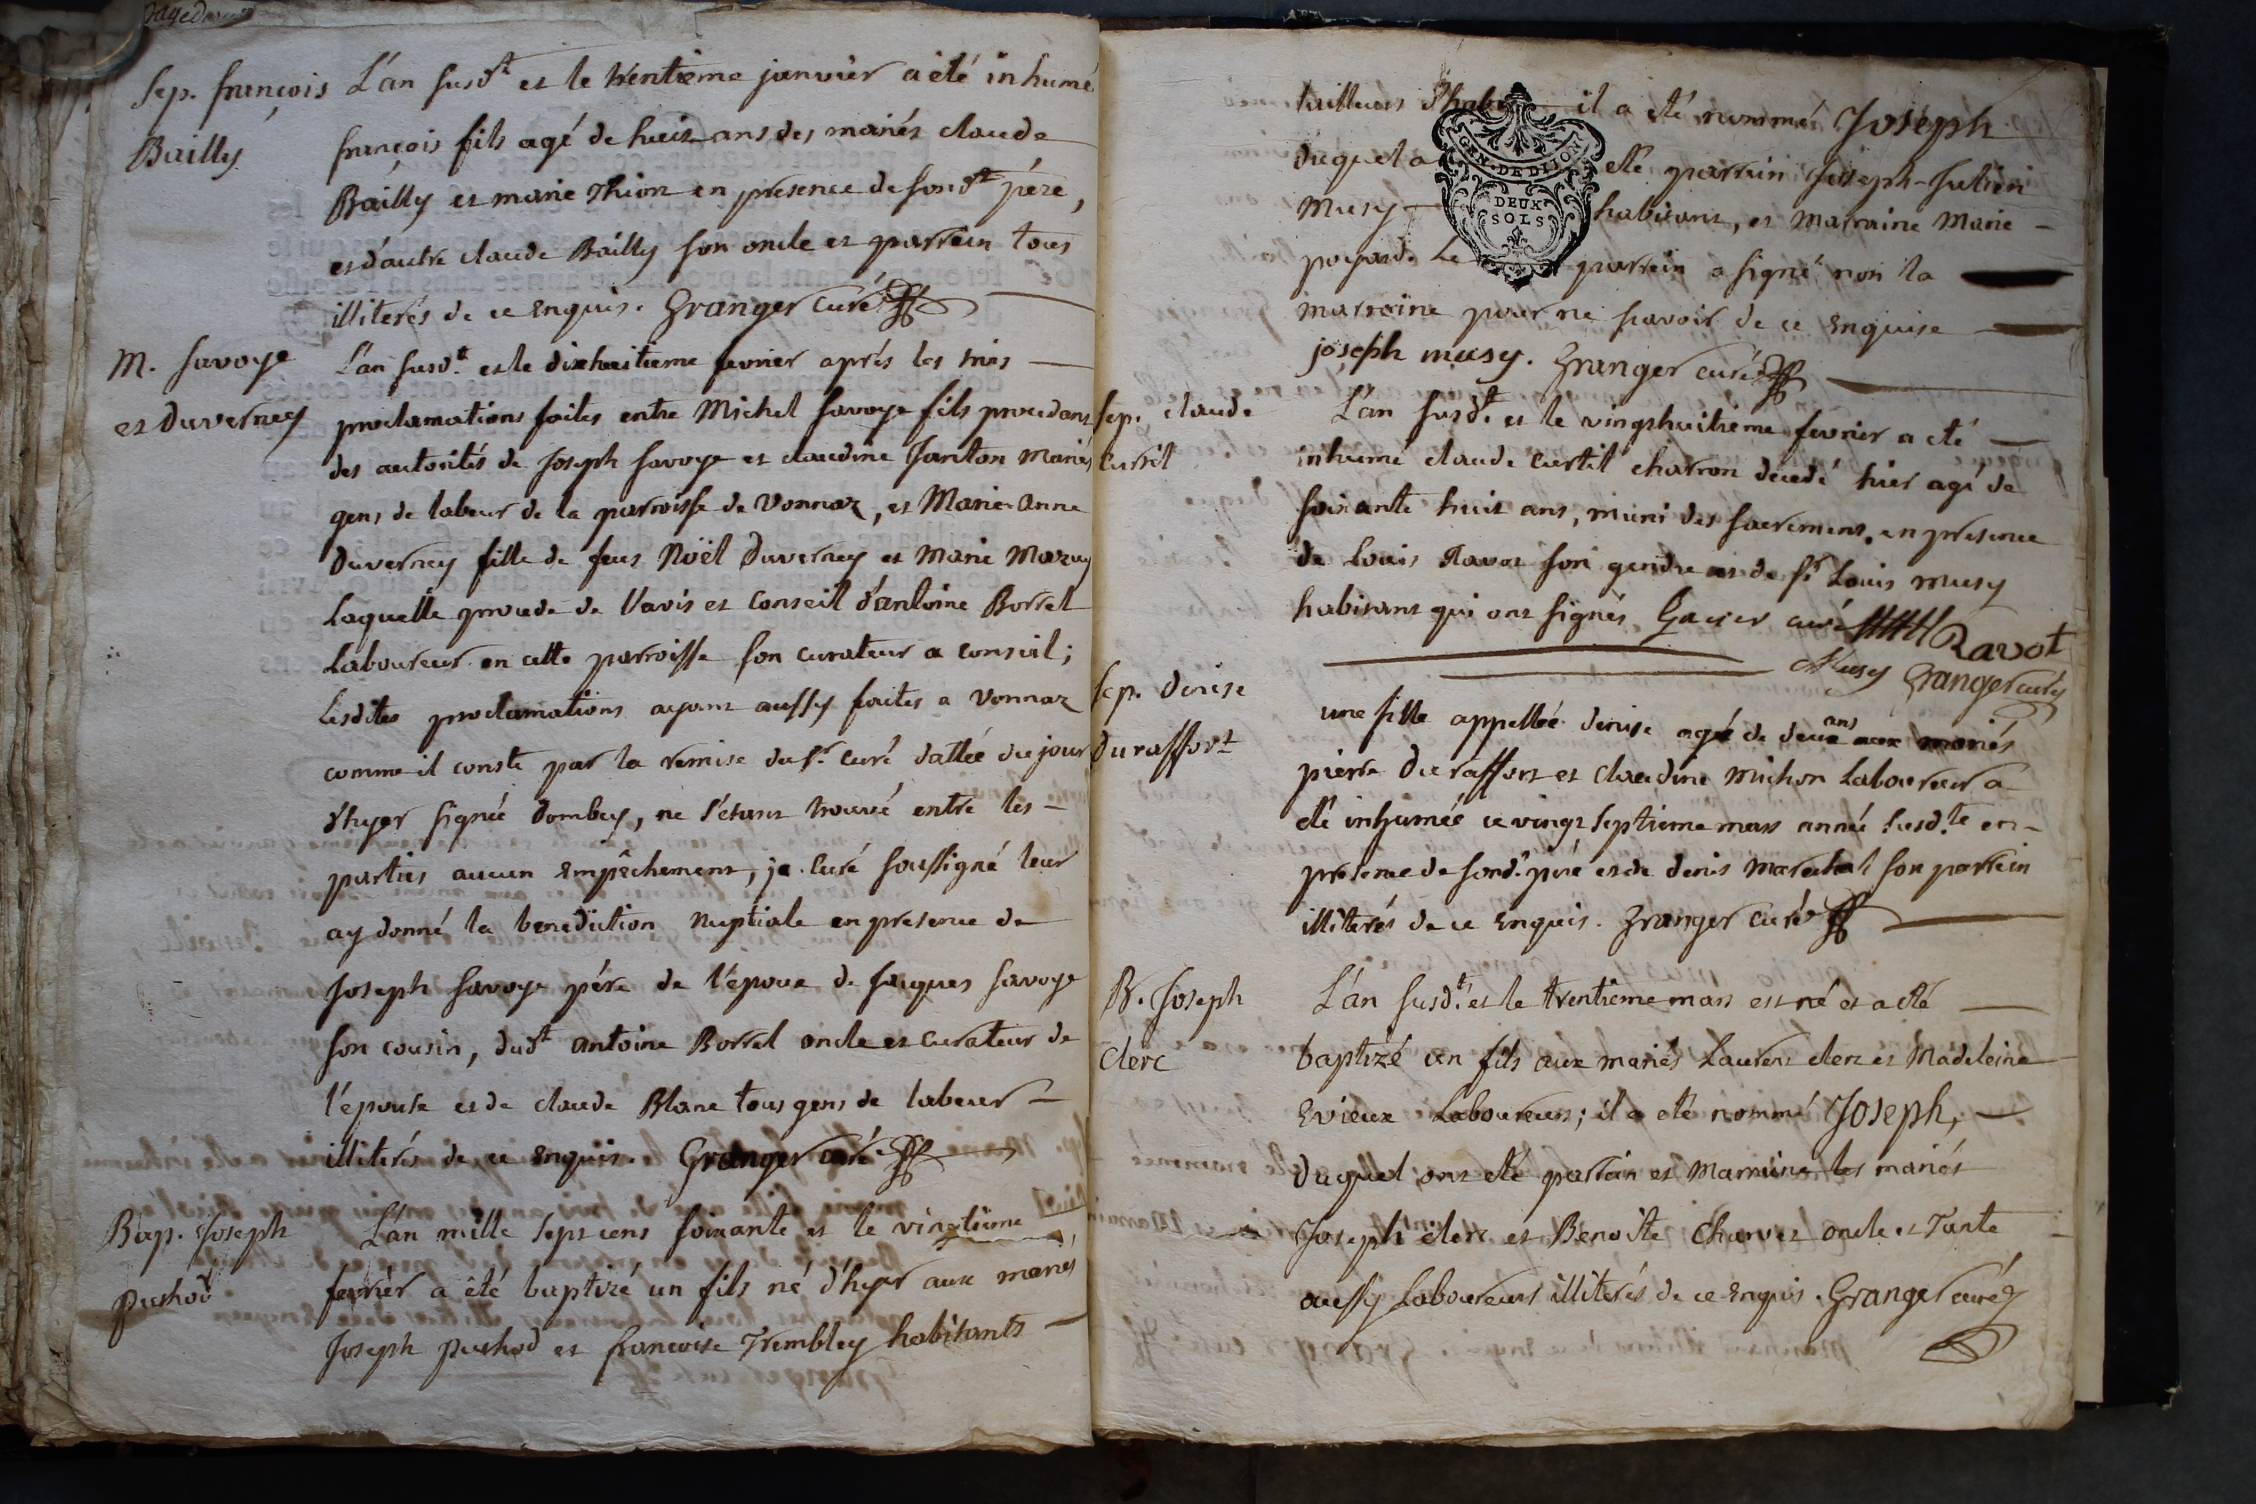 Sep. françois
Bailly
L'an susd.t et le trentieme janvier a été inhumé
françois fils agé de huit ans des mariés claude
Bailly et marie Thion en presence de sond.t pére,
et d'autre claude Bailly son oncle et parrein tous
illiterés de ce enquis. Granger curé
M. Savoye
et Duverney
L'an susd.t et le dixhuitieme fevrier aprés les trois
proclamations faites entre Michel Savoye fils procedant
des autorités de Joseph Savoye et claudine Janton Mariés
gens de labeur de la parroisse de Vonnaz, et Marie Anne
Duverney fille de feus Noël Duverney et Marie Mazuy
Laquelle procede de l'avis et Conseil d'antoine Borrel
Laboureur en cette parroisse son curateur a conseil;
Lesdites proclamations ayant aussy faites a Vonnaz
comme il conste par la remise du S.r curé dattée du jour
d'hyer signée Dombey, ne s'étant trouvé entre les
parties aucun Empêchement, je curé soussigné leur
ay donné la benediction Nuptiale en presence de
Joseph Savoye pére de l'époux de Jacques Savoye
son cousin, dud.t antoine Borrel oncle et curateur de
l'epouse et de claude Blanc tous gens de labeur
illiterés de ce enquis. Granger curé
Bap. Joseph
Puthod
L'an mille sept cens soixante et le vingtieme
fevrier a été baptizé un fils né d'hyer aux mariés
Joseph Puthod et francoise Trembley habitants
tailleurs d'habits il a eté nommé Joseph
duquel a eté parrain Joseph-Julien
Musy habitant, et Marraine Marie
poyard. Le parrein a signé non la
marraine pour ne scavoir de ce Enquise
joseph musy. Granger curé
GEN. DE DIJON
DEUX
SOLS
Sep. claude
Curtil
L'an susd.t et le vingthuitiéme fevrier a eté
inhumé claude curtil charron decedé hier agé de
soixante huit ans, muni des sacremens, en presence
de Louis Ravot son gendre et de S.r Louis Musy
habitant qui ont signés curé Ravot
Musy Granger curé
Sep. Denise
Duraffort
une fille appellée denise agé de deux ans aux mariés
pierre Duraffort et Claudine Michon Laboureur a
été inhumée ce vingt septieme mars année susd.te en
presence de sond.t pére et de denis Marechal son parrein
illiterés de ce Enquis. Granger curé
B. Joseph
Clerc
L'an susd.t et le trentieme mars est né et a été
baptizé un fils aux mariés Laurent clerc et Madeleine
Evieux Laboureurs; il a eté nommé Joseph,
duquel ont eté parrain et Marraine les mariés
Joseph clerc et Benoite Charvet oncle et Tante
aussy Laboureurs illiterés de ce Enquis. Granger curé